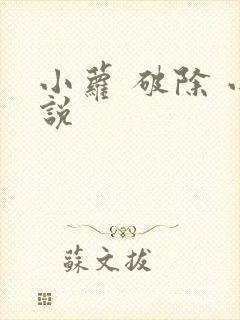 小蘿 破除 小
說
蘇文拔